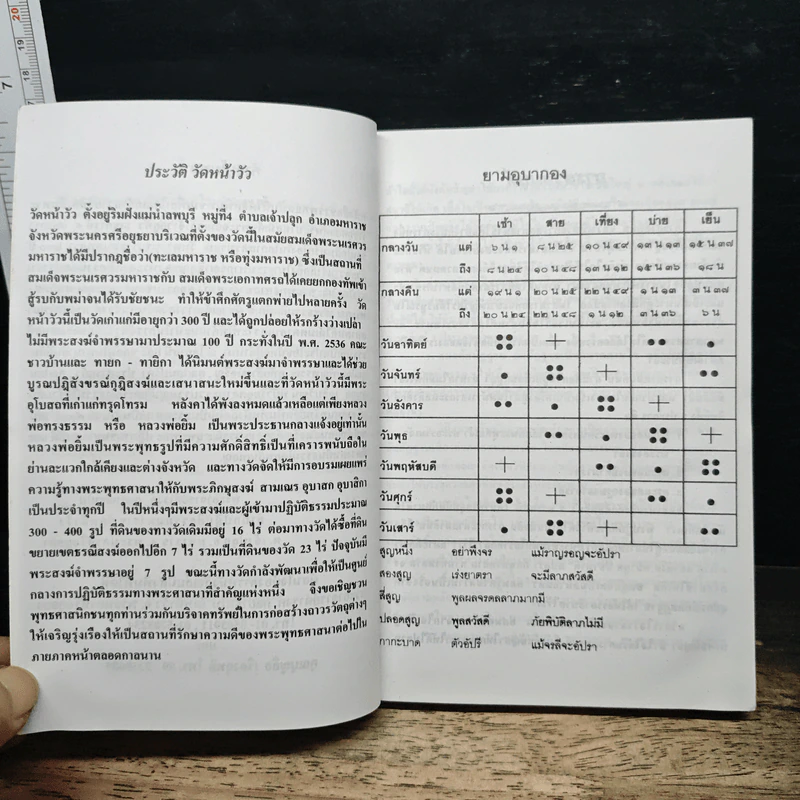 ประวัติ วัดหน้าวัว
วัดหน้าวัว ตั้งอยู่ริมฝั่งแม่น้ำลพบุรี หมู่ที่4 ตำบลเจ้าปลุก อำเภอมหาราช
จังหวัดพระนครศรีอยุธยาบริเวณที่ตั้งของวัดนี้ในสมัยสมเด็จพระนเรศวร
มหาราชได้มีปรากฏชื่อว่า(ทะเลมหาราช หรือทุ่งมหาราช) ซึ่งเป็นสถานที่
สมเด็จพระนเรศวรมหาราชกับ สมเด็จพระเอกาทศรถได้เคยยกกองทัพเข้า
สู้รบกับพม่าจนได้รับชัยชนะ ทำให้ข้าศึกศัตรูแตกพ่ายไปหลายครั้ง วัด
หน้าวัวนี้เป็นวัดเก่าแก่มีอายุกว่า 300 ปี และได้ถูกปล่อยให้รกร้างว่างเปล่า
ไม่มีพระสงฆ์จำพรรษามาประมาณ 100 ปี กระทั่งในปี พ.ศ. 2536 คณะ
ชาวบ้านและ ทายก - ทายิกา ได้นิมนต์พระสงฆ์มาจำพรรษาและได้ช่วย
บูรณปฏิสังขรณ์กุฏิสงฆ์และเสนาสนะใหม่ขึ้นและที่วัดหน้าวัวนี้มีพระ
อุโบสถที่เก่าแก่ทรุดโทรม หลังคาได้พังลงหมดแล้วเหลือแต่เพียงหลวง
พ่อทรงธรรม หรือ หลวงพ่อยิ้ม เป็นพระประธานกลางแจ้งอยู่เท่านั้น
หลวงพ่อยิ้มเป็นพระพุทธรูปที่มีความศักดิ์สิทธิ์เป็นที่เคารารพนับถือใน
ย่านละแวกใกล้เคียงและต่างจังหวัด และทางวัดจัดให้มีการอบรมเผยแพร่
ความรู้ทางพระพุทธศาสนาให้กับพระภิกษุสงฆ์ สามเณร อุบาสก อุบาสิกา
เป็นประจำทุกปี ในปีหนึ่งๆมีพระสงฆ์และผู้เข้ามาปฏิบัติธรรมประมาณ
300 - 400 รูป ที่ดินของทางวัดเดิมมีอยู่ 16 ไร่ ต่อมาทางวัดได้ซื้อที่ดิน
ขยายเขตธรณีสงฆ์ออกไปอีก 7 ไร่ รวมเป็นที่ดินของวัด 23 ไร่ ปัจจุบันมี
พระสงฆ์จำพรรษาอยู่ 7 รูป ขณะนี้ทางวัดกำลังพัฒนาเพื่อให้เป็นศูนย์
กลางการปฏิบัติธรรมทางพระศาสนาที่สำคัญแห่งหนึ่ง จึงขอเชิญชวน
พุทธศาสนิกชนทุกท่านร่วมกันบริจาคทรัพย์ในการก่อสร้างถาวรวัตถุต่างๆ
ให้เจริญรุ่งเรืองให้เป็นสถานที่รักษาความดีของพระพุทธศาสนาต่อไปใน
ภายภาคหน้าตลอดกาลนาน
ยามอุบากอง
เช้า สาย เที่ยง บ่าย เย็น
กลางวัน แต่ ๖ น ๑ ๘ น ๒๕ ๑๐ น ๔๙ ๑๓ น ๑๓ ๑๕ น ๓๗
ถึง ๘ น ๒๔ ๑๐ น ๔๘ ๑๓ น ๑๒ ๑๕ น ๓๖ ๑๘ น
กลางคืน แต่ ๑๙ น ๑ ๒๐ น ๒๕ ๒๒ น ๔๙ ๑ น ๑๓ ๓ น ๓๗
ถึง ๒๐ น ๒๔ ๒๒ น ๔๘ ๑ น ๑๒ ๓ น ๓๖ ๖ น
วันอาทิตย์
วันจันทร์
วันอังคาร
วันพุธ
วันพฤหัสบดี
วันศุกร์
วันเสาร์
สูญหนึ่ง อย่าพึงจร แม้ราญรอญจะอัปรา
สองสูญ เร่งยาตรา จะมีลาภสวัสดี
สี่สูญ พูลผลจรดลลาภมากมี
ปลอดสูญ พูลสวัสดี ภัยพิบัติลาภไม่มี
กากะบาด ตัวอัปรี แม้จรลีจะอัปรา
20
19
18
17
7